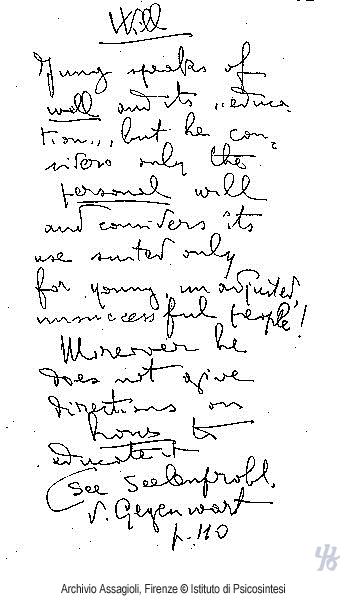 Will
Jung speaks of
will and its „educa-
tion„, but he con-
siders only the
personal will
and considers its
use suited only
for young, unadjusted,
unsuccessful people!
Moreover he
does not give
directions on
how to
educate it
(See Seelenprobl.
d. Gegenwart
p. 110
Archivio Assagioli, Firenze © Istituto di Psicosintesi